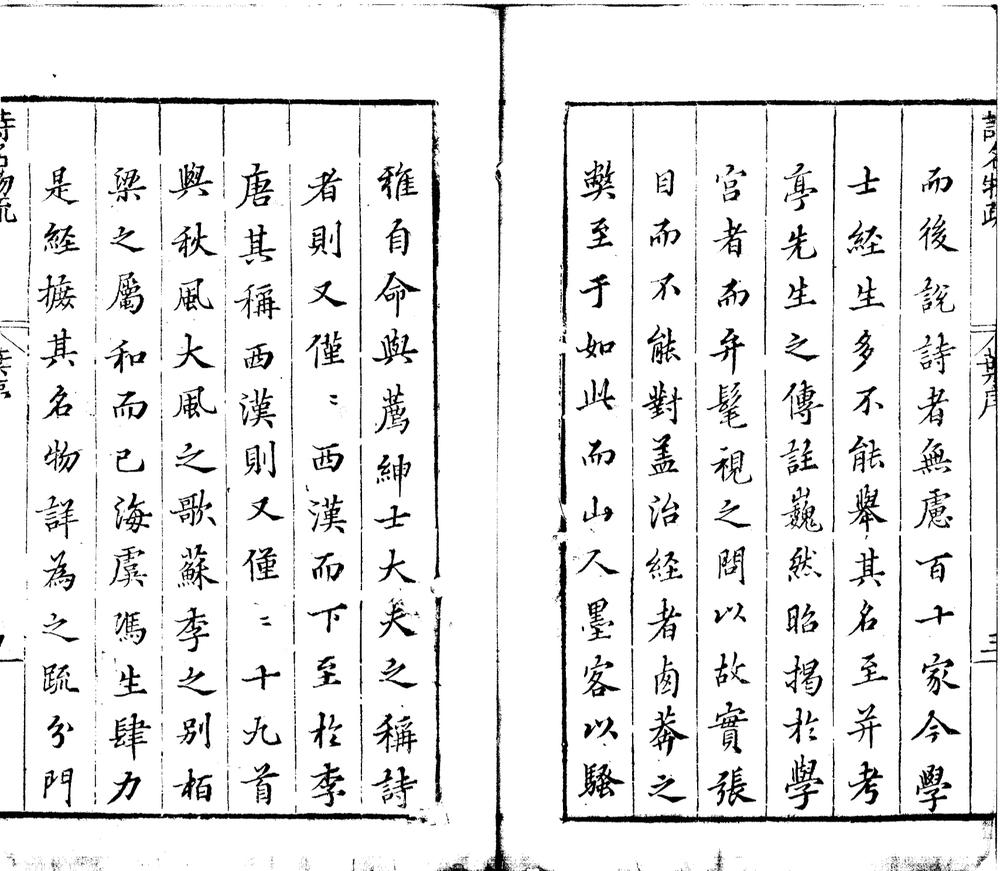 而後說詩者無慮百十家今學
士經生多不能舉其名至并考
亭先生之傳註巍然昭揭於學
宮者而弁髦視之問以故實張
目而不能對盖治經者鹵莽之
獘至于如此而山人墨客以騷
雅自命與薦紳士大夫之稱詩
者則又僅〻西漢而下至於李
唐其稱西漢則又僅〻十九首
與秋風大風之歌蘇李之别栢
梁之屬和而已海虞馮生肆力
是經摭其名物詳為之䟽分門